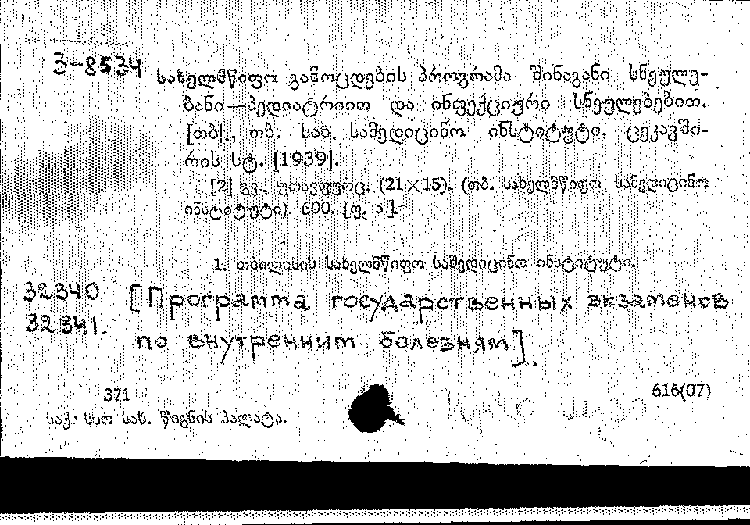 З-8534
სახელმწიფო გამოცდების პროგრამა შინაგანი სნეულე-
ბანი—პედიატრიით და ინფექციური სნეულებებით.
[თბ]., თბ. სახ. სამედიცინო ინსტიტუტი, ცეკავში-
რის სტ. [1939].
[2] გვ. უთავფურც. (21×15). (თბ. სახელმწიფო სამედიცინო
ინსტიტუტი). 600.
1. თბილისის სახელმწიფო სამედიცინო ინსტიტუტი.
32340 [Программа государственных экзаменов
32341. по внутренним болезням].
371 616(07)
საქ. სსრ სახ. წიგნის პალატა.